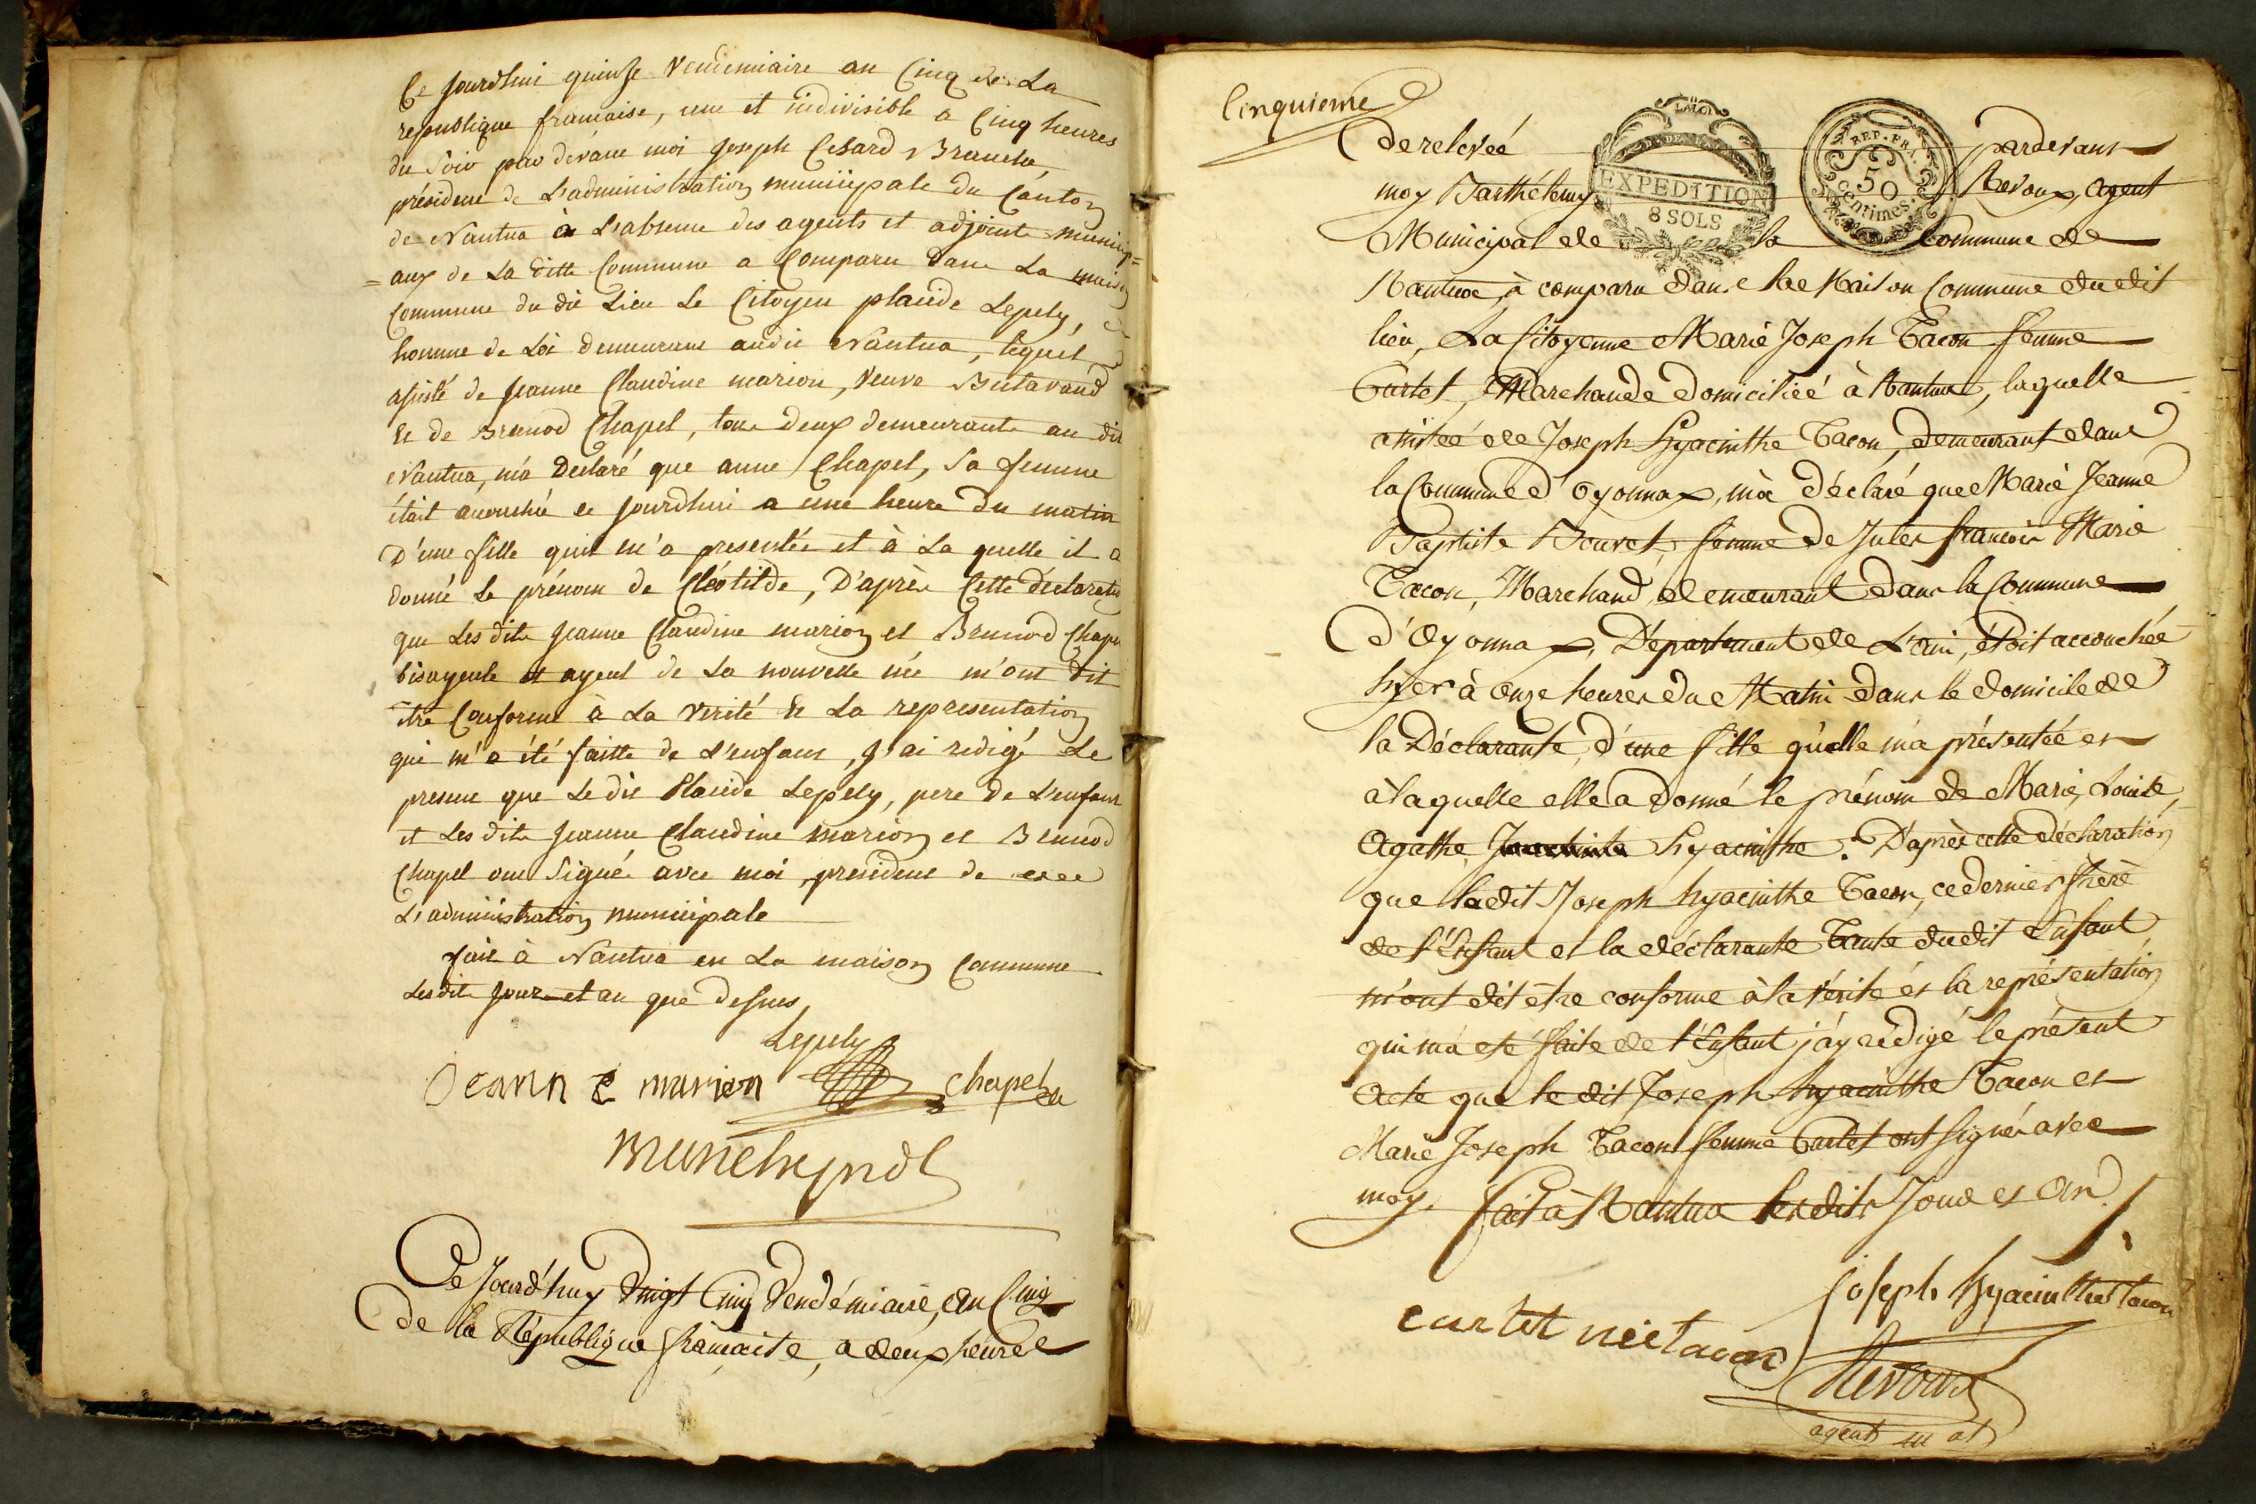 Ce jourdhui quinse Vendemiaire an Cinq de La
republique francaise, une et indivisible a Cinq heures
du Soir par devant moi Joseph Cesard
président de L'administration municipale du Canton
de Nantua à L'absence des agents et adjoints municip=
=aux de La ditte Commune a Comparu dans La maison
Commune du dit Lieu Le Citoyen placide Lepely,
homme de Loi demeurant audit Nantua, lequel
assisté de Jeanne Claudine marion, Veuve
et de Brunod Chapel, tous deux demeurants au dit
Nantua, m'a Declaré que anne Chapel, Sa femme
était accouchée ce jourdhui a une heure du matin
D'une fille quil m'a presentée et à La quelle il a
donné Le prénom de Cléotilde, D'après Cette déclaration
que Les dits Jeanne Claudine marion et Brunod Chapel
bisayeule et ayeul de La nouvelle née m'ont dit
être Conforme à La Verité et La representation
qui m'a été faitte de L'enfant, J'ai redigé Le
present que Le dit Placide Lepely, pere de L'enfant
et Les dits Jeanne Claudine marion et Brunod
Chapel ont Signés avec moi president de
L'administration municipale
fait à Nantua en La maison Commune
Les dits Jour et an que dessus
Lepely
Jeann C marion Chapel
Ce Jourd'huy Vingt Cinq Vendémiaire, an Cinq
de la République francaise, a deux heures
Cinquieme
de relevée pardevant
LA LOI
REP. FRA.
EXPEDITION
8 SOLS
50
Centimes.
moy Barthélemy Revoux, agent
Municipal de la Commune de
Nantua, à comparu dans la Maison Commune dudit
lieu, La Citoyenne Marie Joseph Tacon femme
Curtet, Marchande domiciliée à Nantua, laquelle
assistée de Joseph hyacinthe Tacon, demeurant dans
la Commune d'Oyonnax, m'à déclaré que Marie Jeanne
Baptiste Bouvet, femme de Jules francois Marie
Tacon, Marchand, demeurant dans la Commune
d'Oyonnax, Département de L'ain, étoit accouchée
hyer à onze heures du Matin dans le domicile de
la Déclarante, d'une fille qu'elle m'a présentée et
à laquelle elle a donné le prénom de Marie, Louise,
Agathe hyacinthe. D'après cette déclaration
que ledit Joseph hyacinthe Tacon, ce dernier frère
de l'Enfant et la déclarante Tante dudit Enfant
m'ont dit être conforme à la Vérité et la représentation
qui m'a été faite de l'Enfant j'ay rédigé le présent
Acte que le dit Joseph hyacinthe Tacon et
Marie Joseph Tacon femme Curtet ont signés avec
moy. fait à Nantua les dits Jour et an
Joseph hyacinthe tacon
curtet née tacon
Revoux
agent